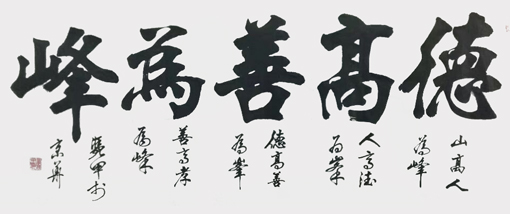 德高善為峰
山高人
為峰
人高德
為峰
德高善
為峯
善高孝
為峰
於京華